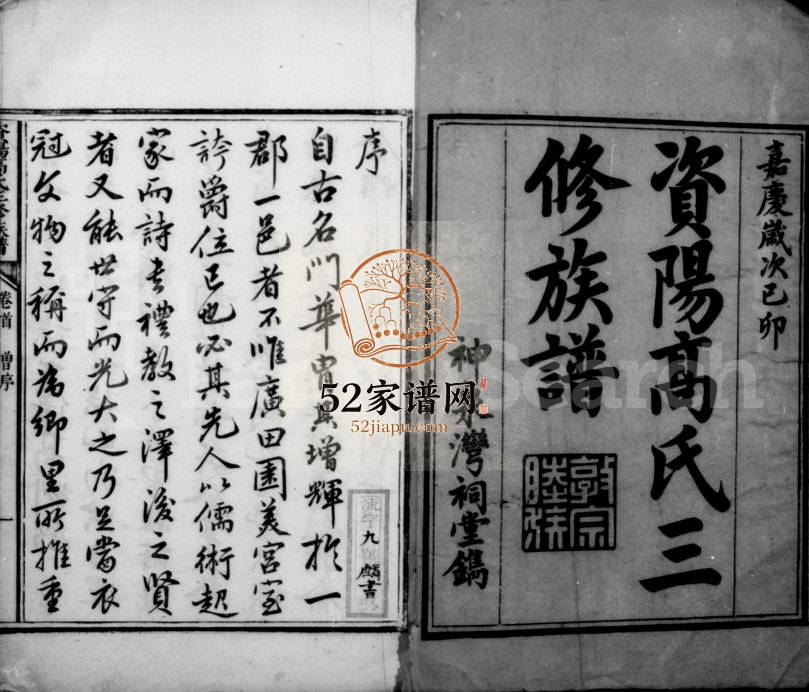 嘉慶歲次己卯
資陽高氏三
修族譜
敦宗
睦族
神 灣祠堂鐫
序
自古名門華胄 增輝於一
郡一邑者不唯廣田園美宮室
誇爵位已也必其先人以儒術起
家而詩書禮教之澤後之賢
者又能世守而光大之乃足當衣
冠文物之稱而為鄉里所推重
九 麟書
資陽高氏三修族譜
卷首 增序
一
52家谱网
52jiapu.com
Search